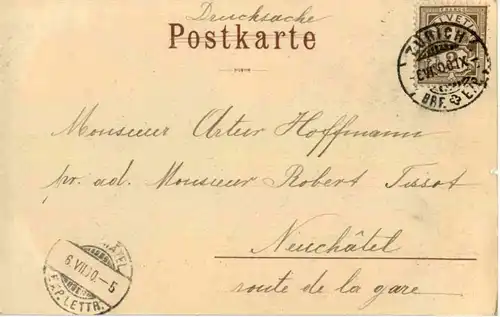 Drucksache
Postkarte
HELVETIA
ZÜRICH
BRF. EXP.
Monsieur Artur Hoffmann
pr. ad. Monsieur Robert Tissot
Neuchâtel
route de la gare
6 VII 00.-5
EXP. LETTR.